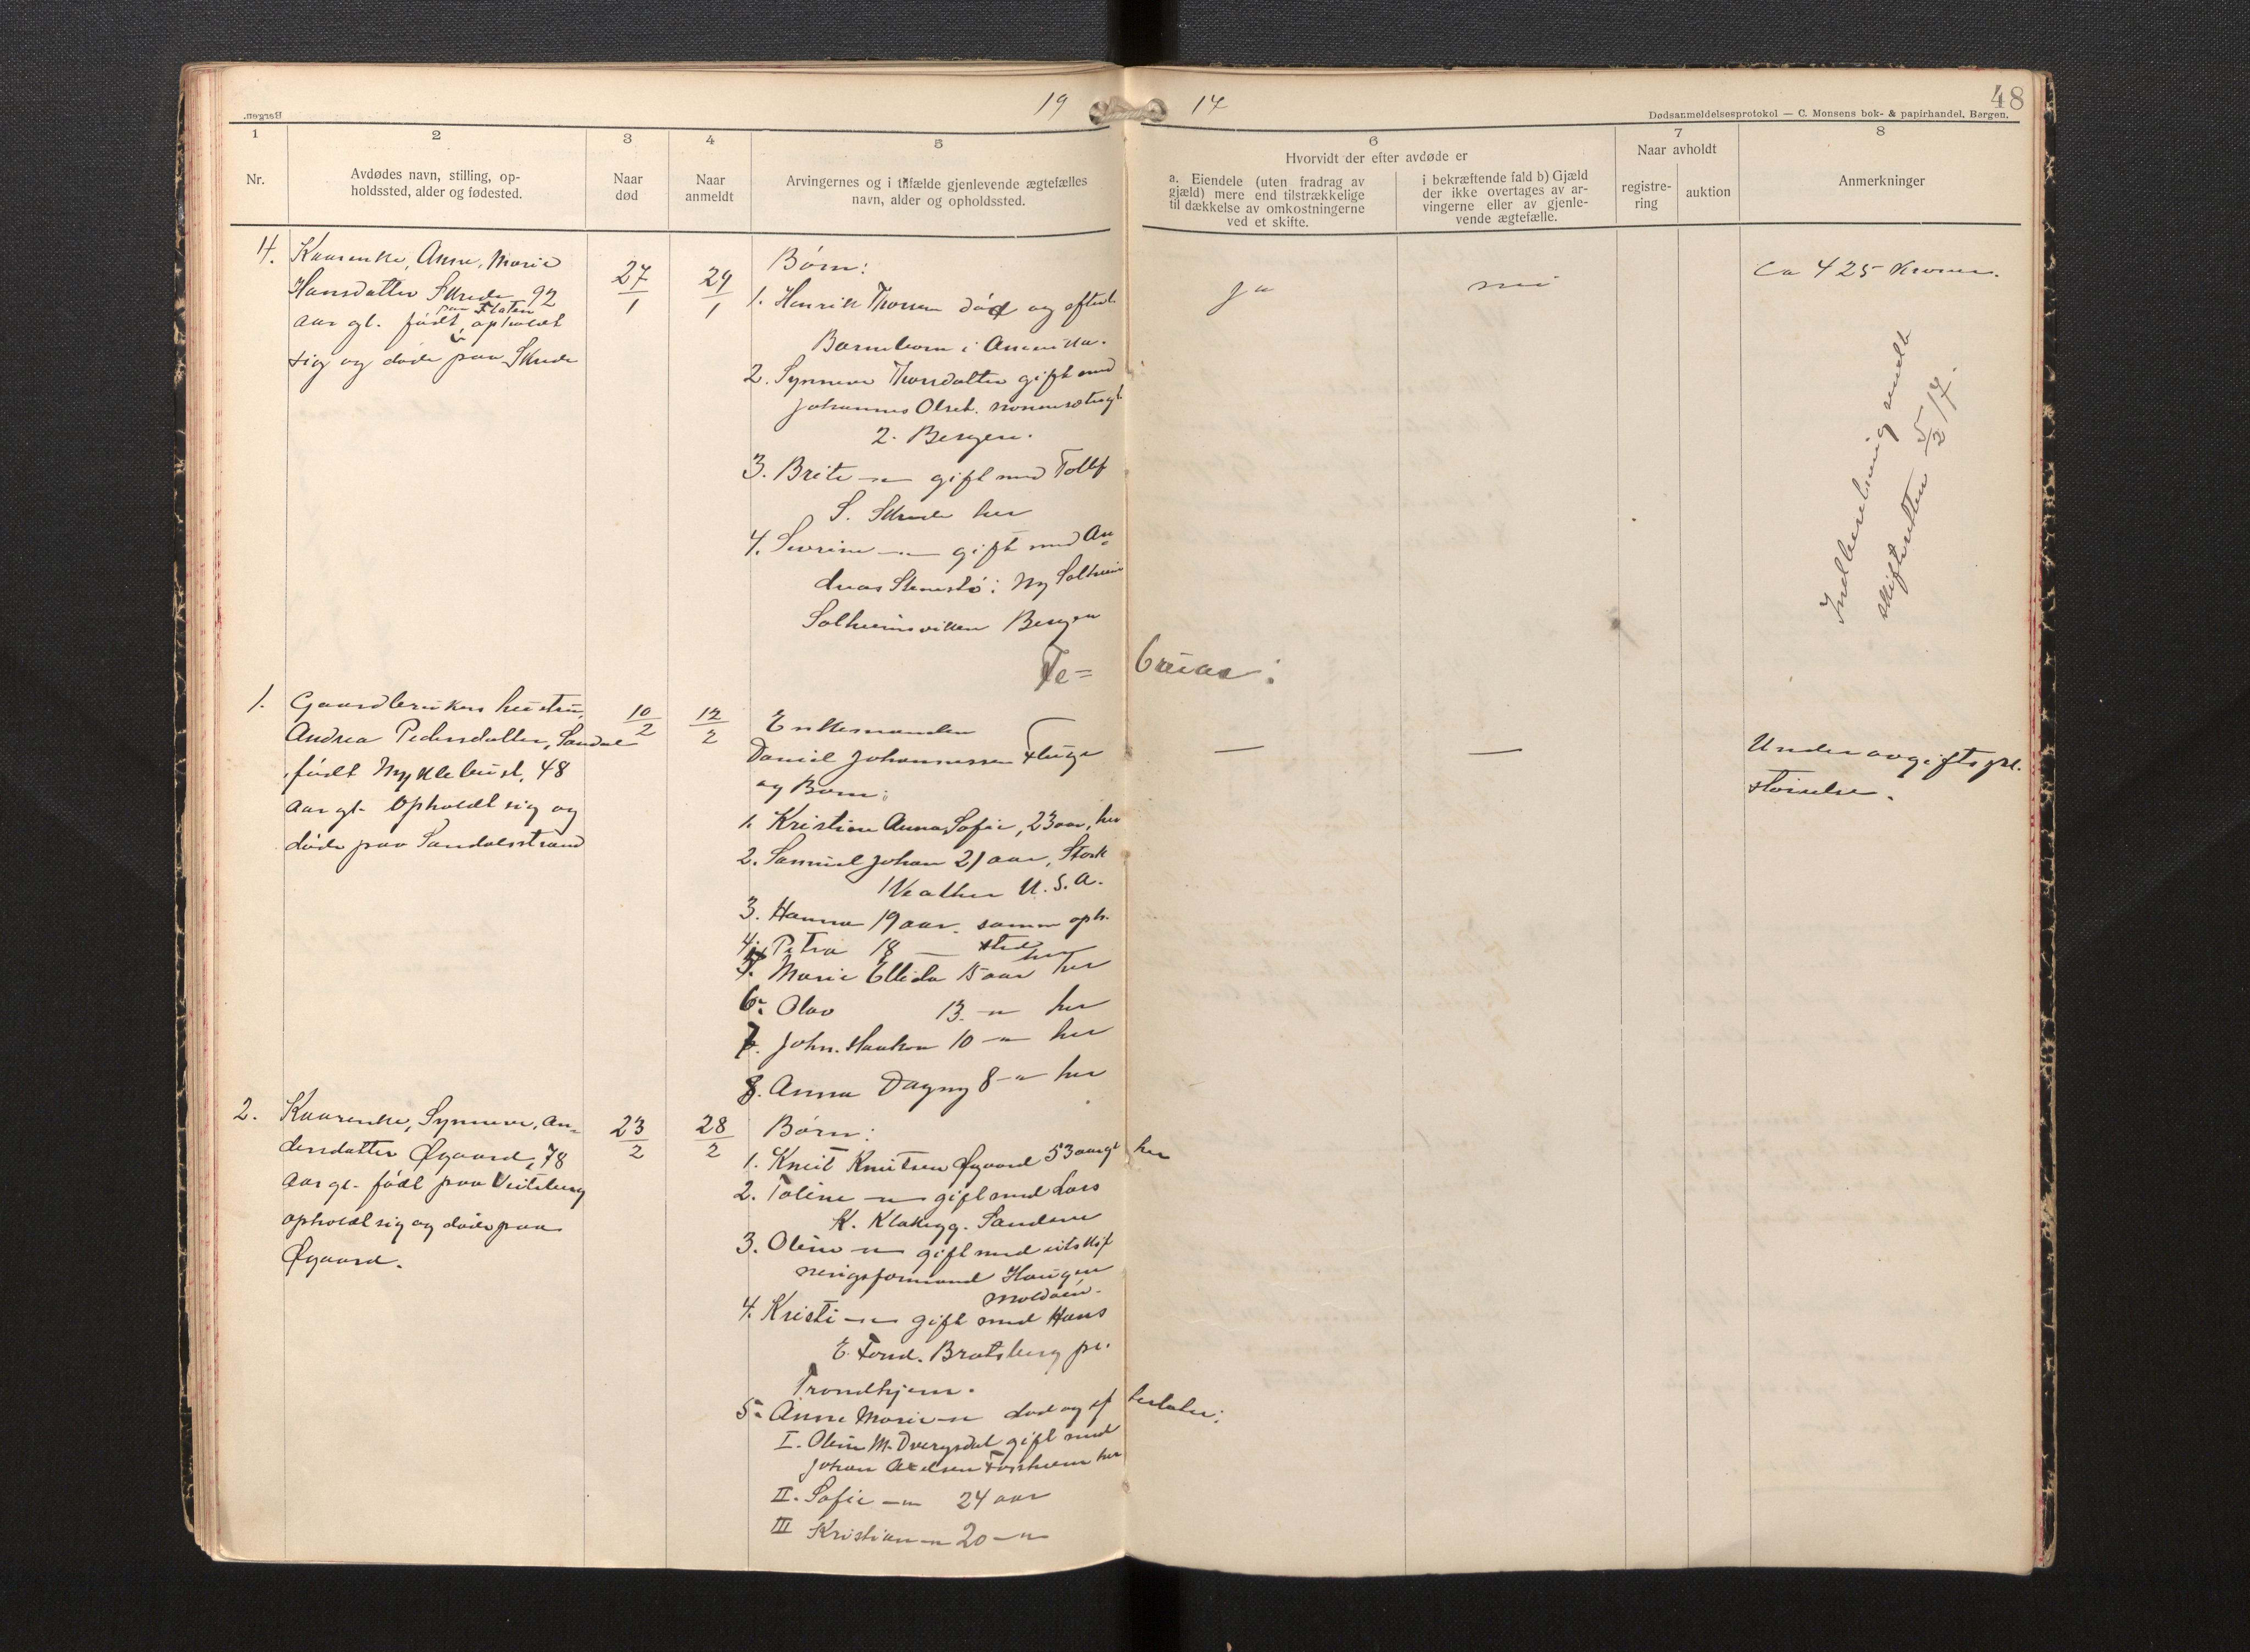 19 17
48
Dødsanmeldelsesprotokol — C. Monsens bok- & papirhandel, Bergen.
Bergen.
1 2 3 4 5 6 7 8
Nr.
Avdødes navn, stilling, op-
holdssted, alder og fødested.
Naar
død
Naar
anmeldt
Arvingernes og i tilfælde gjenlevende ægtefælles
navn, alder og opholdssted.
Hvorvidt der efter avdøde er
a. Eiendele (uten fradrag av
gjæld) mere end tilstrækkelige
til dækkelse av omkostningerne
ved et skifte.
i bekræftende fald b) Gjæld
der ikke overtages av ar-
vingerne eller av gjenle-
vende ægtefælle.
Naar avholdt
registre-
ring
auktion
Anmerkninger
4.
Kaarenke, Anne, Marie
Hansdatter Skrede 92
paa Flaten
aar gl. født, opholdt
sig og døde paa Skrede
27/1
29/1
Børn:
1. Henrik Thorsen død og efterl.
Barnebørn i Amerika.
2. Synneve Thorsdatter gift med
Johannes Olset.
2. Bergen.
3. Brite —"— gift med Tollf
S. Skrede her
4. Severine —"— gift med An=
dreas Stensø i Ny Solheim
Solheimsviken Bergen
ja
nei
Ca 425 Kroner.
Indberetning sendt
skifteretten 5/2 17.
Fe= bruar:
1.
Gaardbrukers hustru,
Andrea Pedersdatter, Sandal
født Myklebust, 48
aar gl. opholdt sig og
døde paa Sandalsstrand
10/2
12/2
Enkemanden
Daniel Johannessen Fluge
og Børn:
1. Kristine Anna Sofie, 23 aar, her
2. Samuel Johan 21 aar, Stork
Weather U.S.A.
3. Hanna 19 aar. samme oph.
sted
4. Petra 18 — her
5. Marie Ellida 15 aar her
6. Olav 13 —"— her
7. John. Haakon 10 —"— her
8. Anna Dagny 8 —"— her
—
—
Under avgiftspl.
størrelse.
2.
Kaarenke, Synneve, An=
dersdatter Øgaard, 78
aar gl. født paa Veiteberg
opholdt sig og døde paa
Øgaard.
23/2
28/2
Børn:
1. Knut Knutsen Øgaard 53 aar gl her
2. Taline —"— gift med Lars
K. Klakegg. Sandene
3. Oline —"— gift med utskif
ningsformand Haugen
Moldøen.
4. Kristi —"— gift med Hans
E. Fond. Bratsberg pr.
Trondhjem.
5. Anne Marie —"— død og ef terlater:
I. Oline M. Dvergsdal gift med
Johan Axelsen Fossheim her
II. Sofie —"— 24 aar
III Kristian —"— 20 —"—